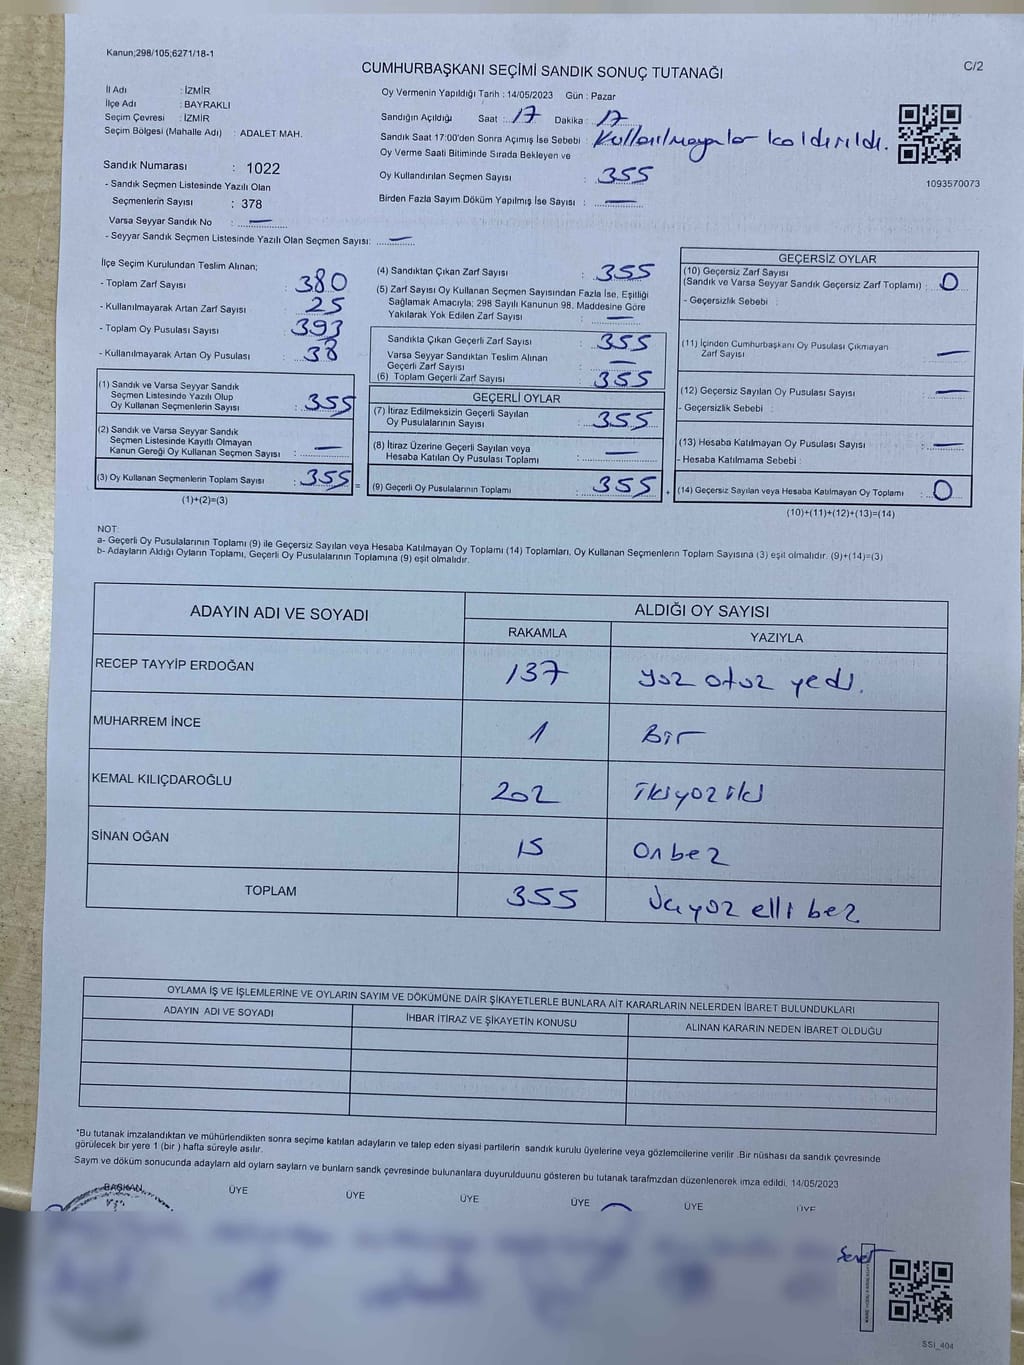 Kanun;298/105;6271/18-1
C/2
CUMHURBAŞKANI SEÇİMİ SANDIK SONUÇ TUTANAĞI
İl Adı : İZMİR
İlçe Adı : BAYRAKLI
Seçim Çevresi : İZMİR
Seçim Bölgesi (Mahalle Adı) : ADALET MAH.
Oy Vermenin Yapıldığı Tarih : 14/05/2023 Gün : Pazar
Sandığın Açıldığı Saat : 17 Dakika : 17
Sandık Saat 17:00'den Sonra Açımış İse Sebebi : Kullanılmayanlar kaldırıldı.
Oy Verme Saati Bitiminde Sırada Bekleyen ve
Oy Kullandırılan Seçmen Sayısı : 355
Birden Fazla Sayım Döküm Yapılmış İse Sayısı : —
1093570073
Sandık Numarası : 1022
- Sandık Seçmen Listesinde Yazılı Olan
Seçmenlerin Sayısı : 378
Varsa Seyyar Sandık No : —
- Seyyar Sandık Seçmen Listesinde Yazılı Olan Seçmen Sayısı: —
İlçe Seçim Kurulundan Teslim Alınan;
- Toplam Zarf Sayısı : 380
- Kullanılmayarak Artan Zarf Sayısı : 25
- Toplam Oy Pusulası Sayısı : 393
- Kullanılmayarak Artan Oy Pusulası : 38
(1) Sandık ve Varsa Seyyar Sandık
Seçmen Listesinde Yazılı Olup
Oy Kullanan Seçmenlerin Sayısı : 355
(2) Sandık ve Varsa Seyyar Sandık
Seçmen Listesinde Kayıtlı Olmayan
Kanun Gereği Oy Kullanan Seçmen Sayısı : —
(3) Oy Kullanan Seçmenlerin Toplam Sayısı : 355 =
(1)+(2)=(3)
(4) Sandıktan Çıkan Zarf Sayısı : 355
(5) Zarf Sayısı Oy Kullanan Seçmen Sayısından Fazla İse, Eşitliği
Sağlamak Amacıyla; 298 Sayılı Kanunun 98. Maddesine Göre
Yakılarak Yok Edilen Zarf Sayısı : —
Sandıkta Çıkan Geçerli Zarf Sayısı : 355
Varsa Seyyar Sandıktan Teslim Alınan
Geçerli Zarf Sayısı : —
(6) Toplam Geçerli Zarf Sayısı : 355
GEÇERLİ OYLAR
(7) İtiraz Edilmeksizin Geçerli Sayılan
Oy Pusulalarının Sayısı : 355
(8) İtiraz Üzerine Geçerli Sayılan veya
Hesaba Katılan Oy Pusulası Toplamı : —
(9) Geçerli Oy Pusulalarının Toplamı : 355 +
GEÇERSİZ OYLAR
(10) Geçersiz Zarf Sayısı
(Sandık ve Varsa Seyyar Sandık Geçersiz Zarf Toplamı) : 0
- Geçersizlik Sebebi :
(11) İçinden Cumhurbaşkanı Oy Pusulası Çıkmayan
Zarf Sayısı : —
(12) Geçersiz Sayılan Oy Pusulası Sayısı : —
- Geçersizlik Sebebi :
(13) Hesaba Katılmayan Oy Pusulası Sayısı : —
- Hesaba Katılmama Sebebi :
(14) Geçersiz Sayılan veya Hesaba Katılmayan Oy Toplamı : 0
(10)+(11)+(12)+(13)=(14)
NOT:
a- Geçerli Oy Pusulalarının Toplamı (9) ile Geçersiz Sayılan veya Hesaba Katılmayan Oy Toplamı (14) Toplamları, Oy Kullanan Seçmenlerin Toplam Sayısına (3) eşit olmalıdır. (9)+(14)=(3)
b- Adayların Aldığı Oyların Toplamı, Geçerli Oy Pusulalarının Toplamına (9) eşit olmalıdır.
ADAYIN ADI VE SOYADI ALDIĞI OY SAYISI
RAKAMLA YAZIYLA
RECEP TAYYİP ERDOĞAN 137 yüz otuz yedi.
MUHARREM İNCE 1 Bir
KEMAL KILIÇDAROĞLU 202 ikiyüz iki
SİNAN OĞAN 15 Onbeş
TOPLAM 355 üçyüz elli beş
OYLAMA İŞ VE İŞLEMLERİNE VE OYLARIN SAYIM VE DÖKÜMÜNE DAİR ŞİKAYETLERLE BUNLARA AİT KARARLARIN NELERDEN İBARET BULUNDUKLARI
ADAYIN ADI VE SOYADI İHBAR İTİRAZ VE ŞİKAYETİN KONUSU ALINAN KARARIN NEDEN İBARET OLDUĞU
*Bu tutanak imzalandıktan ve mühürlendikten sonra seçime katılan adayların ve talep eden siyasi partilerin sandık kurulu üyelerine veya gözlemcilerine verilir .Bir nüshası da sandık çevresinde
görülecek bir yere 1 (bir ) hafta süreyle asılır.
Saym ve döküm sonucunda adayların ald oyların saylarn ve bunların sandk çevresinde bulunanlara duyurulduunu gösteren bu tutanak tarafmzdan düzenlenerek imza edildi. 14/05/2023
BAŞKAN ÜYE ÜYE ÜYE ÜYE ÜYE ÜYE
SSİ_404